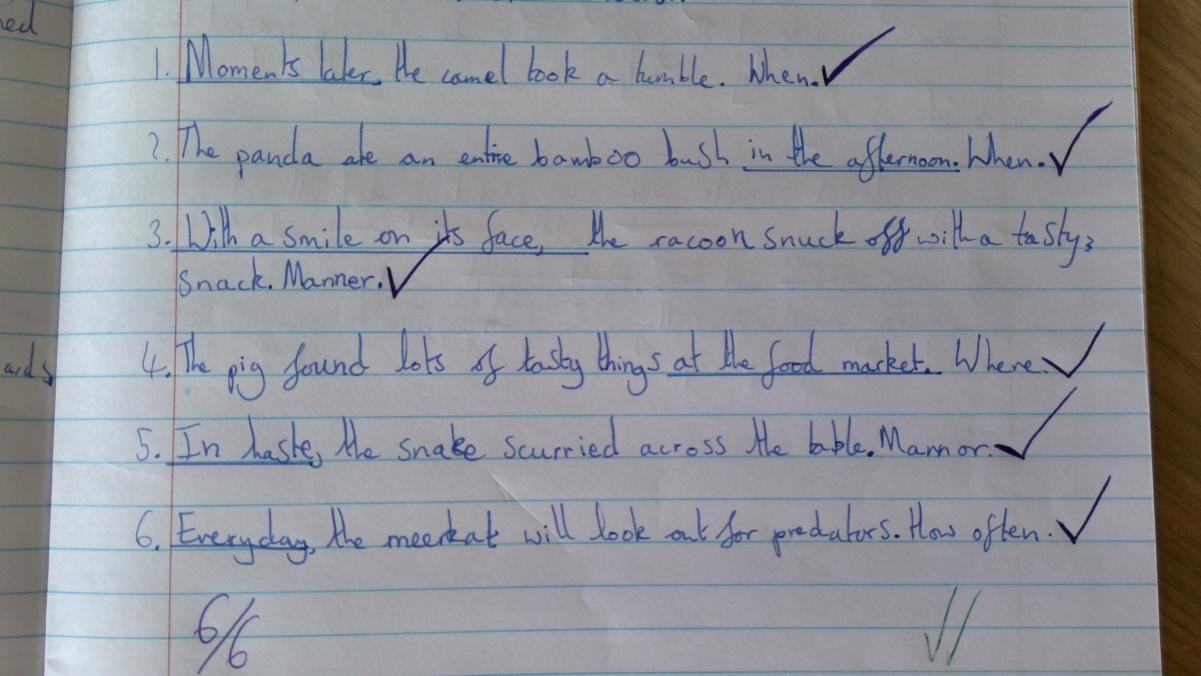 ned
1. Moments later, the camel took a tumble. When.
2. The panda ate an entire bamboo bush in the afternoon. When.
3. With a smile on its face, the racoon snuck off with a tasty
snack. Manner.
4. The pig found lots of tasty things at the food market. Where.
ards
5. In haste, the snake scurried across the table. Mannor.
6. Everyday, the meerkat will look out for predators. How often.
6/6